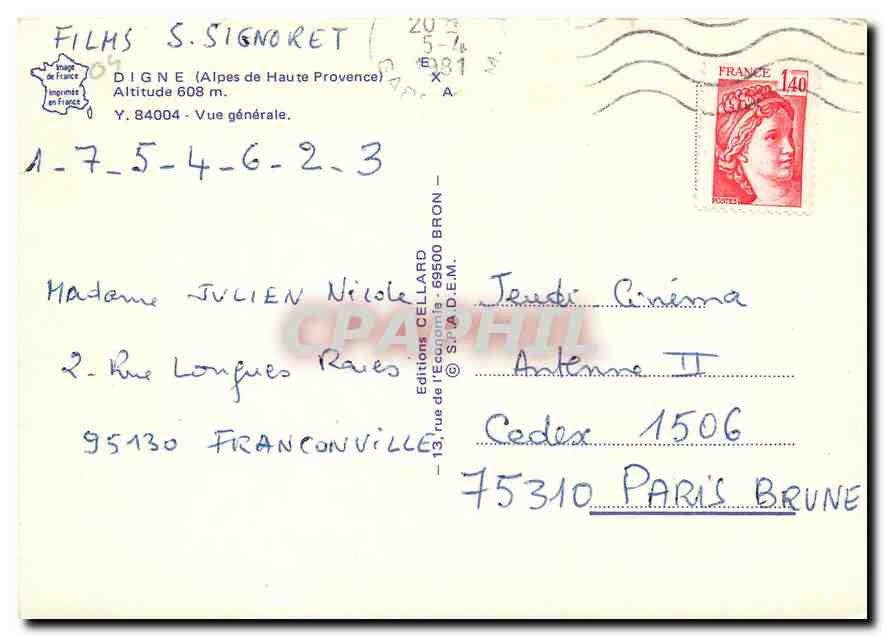 FILMS S. SIGNORET
Image
de France
Imprimée
en France
04
DIGNE (Alpes de Haute Provence)
Altitude 608 m.
Y. 84004 - Vue générale.
EXA
20
5-4
1981
FRANCE 1,40
POSTES
1-7-5-4-6-2-3
Madame JULIEN Nicole
2- Rue Longues Raies
95130 FRANCONVILLE
Editions CELLARD
- 13, rue de l'Economie - 69500 BRON -
© S.P.A.D.E.M.
CPAPHIL
Jeudi Cinéma
Antenne II
Cedex 1506
75310 PARIS BRUNE